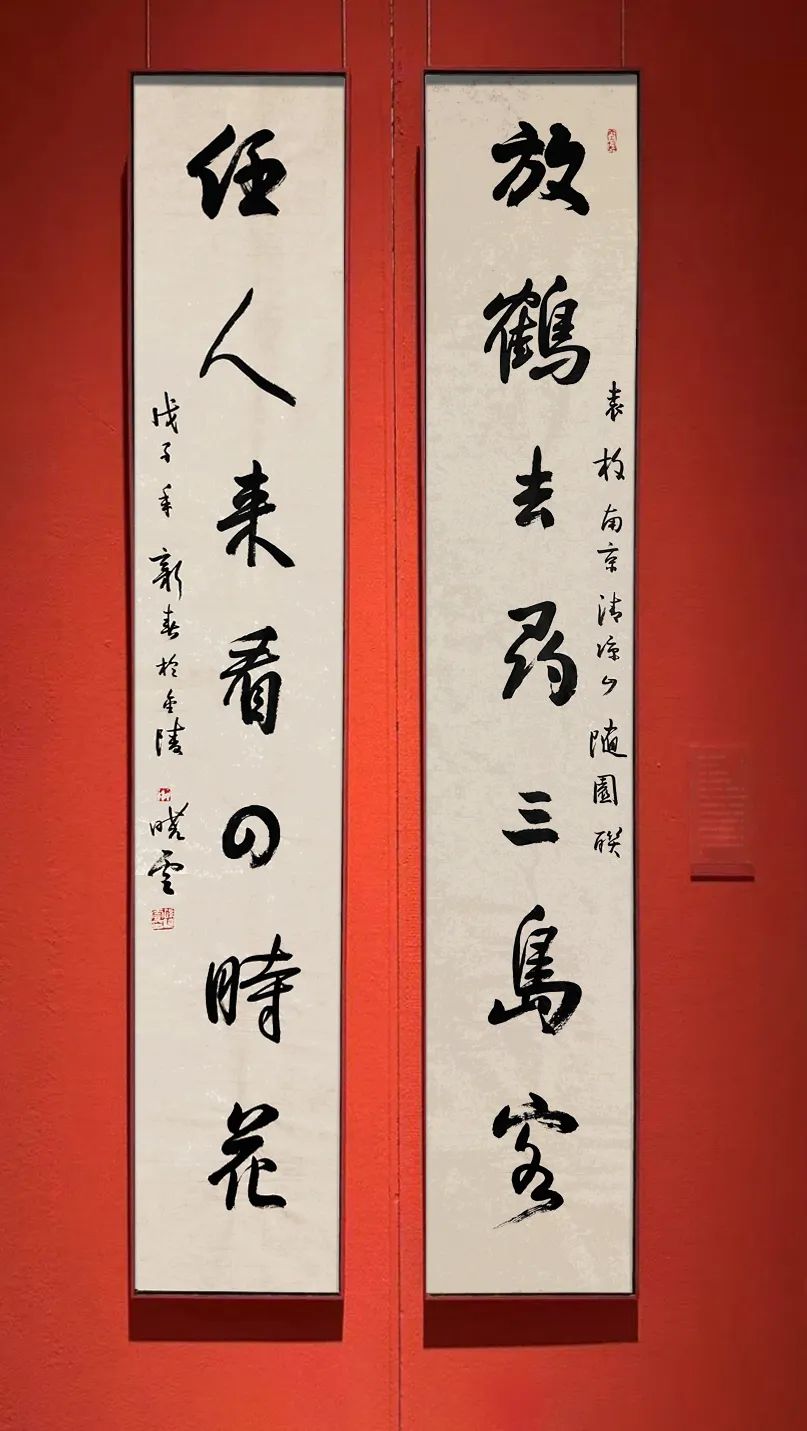 放鹤去尋三島客
袁枚南京清凉山随園联
任人来看四時花
戊子年新春於金陵
晓雲